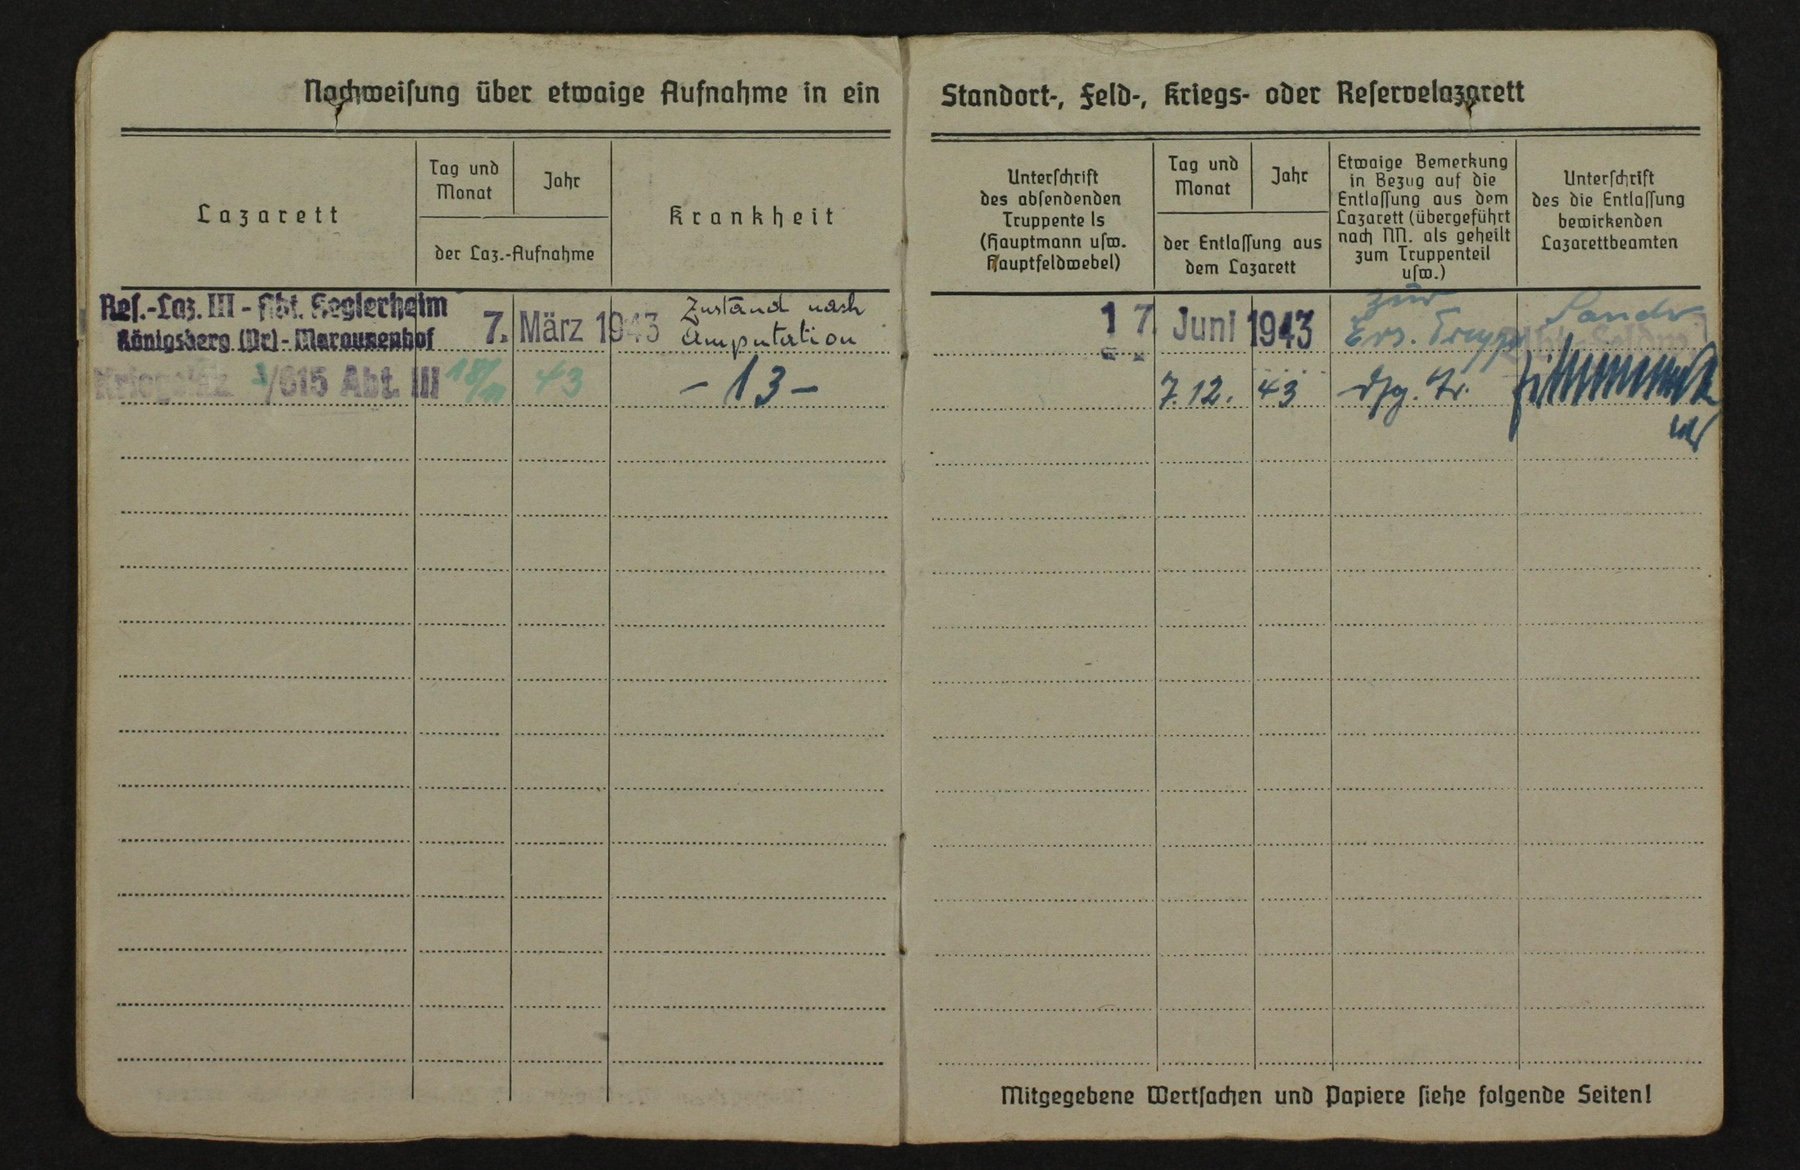 Nachweisung über etwaige Aufnahme in ein
Lazarett
Tag und
Monat
Jahr
der Laz.-Aufnahme
Krankheit
Res.-Laz. III - Abt. Keglerheim
Königsberg (Pr) - Maraunenhof
7. März 1943
Zustand nach
Amputation
Kriegslaz. /615 Abt. III
18/ 43
- 13 -
Standort-, Feld-, Kriegs- oder Reservelazarett
Unterschrift
des absendenden
Truppente ls
(Hauptmann usw.
Hauptfeldwebel)
Tag und
Monat
Jahr
der Entlassung aus
dem Lazarett
Etwaige Bemerkung
in Bezug auf die
Entlassung aus dem
Lazarett (übergeführt
nach NN. als geheilt
zum Truppenteil
usw.)
Unterschrift
des die Entlassung
bewirkenden
Lazarettbeamten
17. Juni 1943
zur
Ers. Truppe
7.12. 43
Mitgegebene Wertsachen und Papiere siehe folgende Seiten!